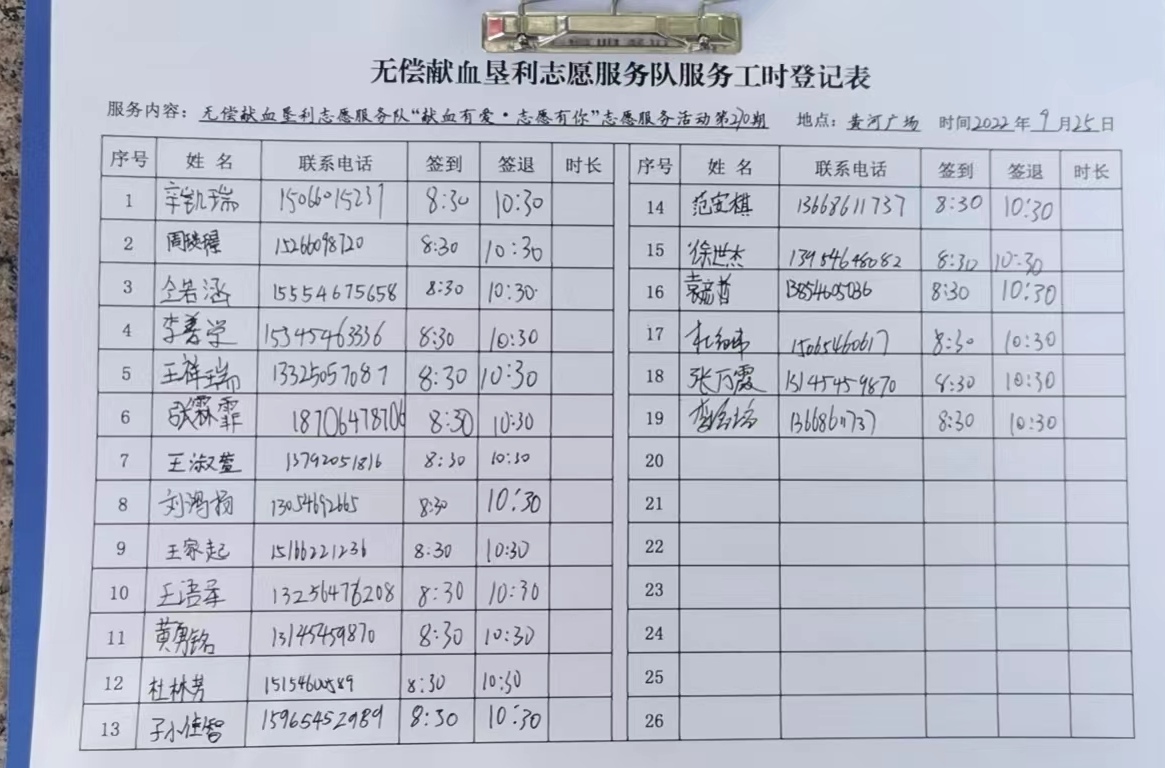 无偿献血垦利志愿服务队服务工时登记表
服务内容：无偿献血垦利志愿服务队“献血有爱·志愿有你”志愿服务活动第270期 地点：黄河广场 时间2022年9月25日
序号 姓名 联系电话 签到 签退 时长
1 辛凯瑞 15066015237 8:30 10:30
2 周 15266098720 8:30 10:30
3 仝若涵 15554675658 8:30 10:30
4 李善学 15345463336 8:30 10:30
5 王祥瑞 13325057087 8:30 10:30
6 张霖霏 18706478706 8:30 10:30
7 王淑萱 13792051816 8:30 10:30
8 刘鸿扬 13054692665 8:30 10:30
9 王家起 15166221236 8:30 10:30
10 王语 13256476208 8:30 10:30
11 黄勇铭 13145459870 8:30 10:30
12 杜林芳 1515460589 8:30 10:30
13 15965452989 8:30 10:30
序号 姓名 联系电话 签到 签退 时长
14 范宝棋 13668611737 8:30 10:30
15 徐世杰 13954648082 8:30 10:30
16 袁 13854605036 8:30 10:30
17 杜 15065460617 8:30 10:30
18 张万霞 13145459870 8:30 10:30
19 李 1366861737 8:30 10:30
20
21
22
23
24
25
26